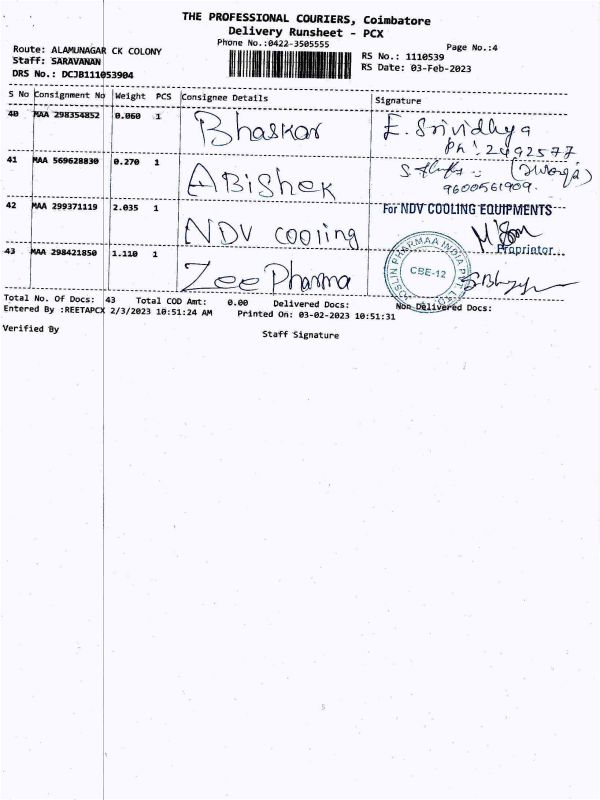 THE PROFESSIONAL COURIERS, Coimbatore
Delivery Runsheet - PCX
Phone No.:0422-3505555
Page No.:4
Route: ALAMUNAGAR CK COLONY
RS No.: 1110539
Staff: SARAVANAN
RS Date: 03-Feb-2023
DRS No.: DCJB111053904
S No Consignment No Weight PCS Consignee Details Signature
40 MAA 298354852 0.060 1 Bhaskar E. Srividhya
Ph: 2492577
41 MAA 569628830 0.270 1 ABishek
9600561909.
42 MAA 299371119 2.035 1 NDV cooling For NDV COOLING EQUIPMENTS
Proprietor
43 MAA 298421850 1.110 1 Zee Pharma
JOSLIN PHARMAA INDIA PVT LTD
CBE-12
Total No. Of Docs: 43 Total COD Amt: 0.00 Delivered Docs: Non Delivered Docs:
Entered By :REETAPCX 2/3/2023 10:51:24 AM Printed On: 03-02-2023 10:51:31
Verified By
Staff Signature